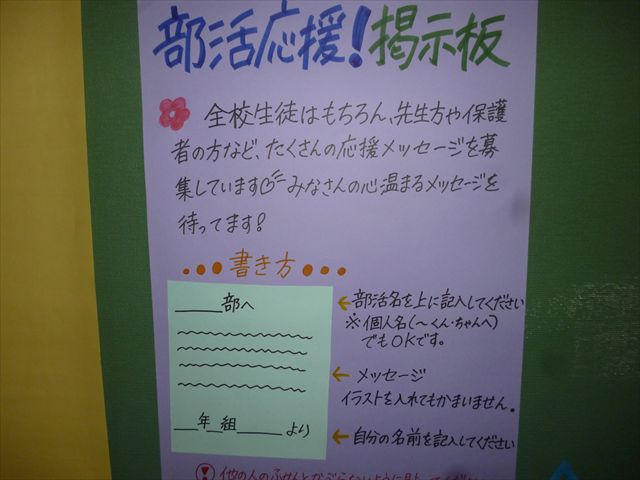 部活応援!掲示板
全校生徒はもちろん、先生方や保護
者の方など、たくさんの応援メッセージを募
集しています みなさんの心温まるメッセージを
待ってます!
書き方
___部へ
←部活名を上に記入してください
※個人名(〜くん・ちゃんへ)
でもOKです。
←メッセージ
イラストを入れてもかまいません。
__年__組____より
←自分の名前を記入してください
他の人のふせんとかぶらないように